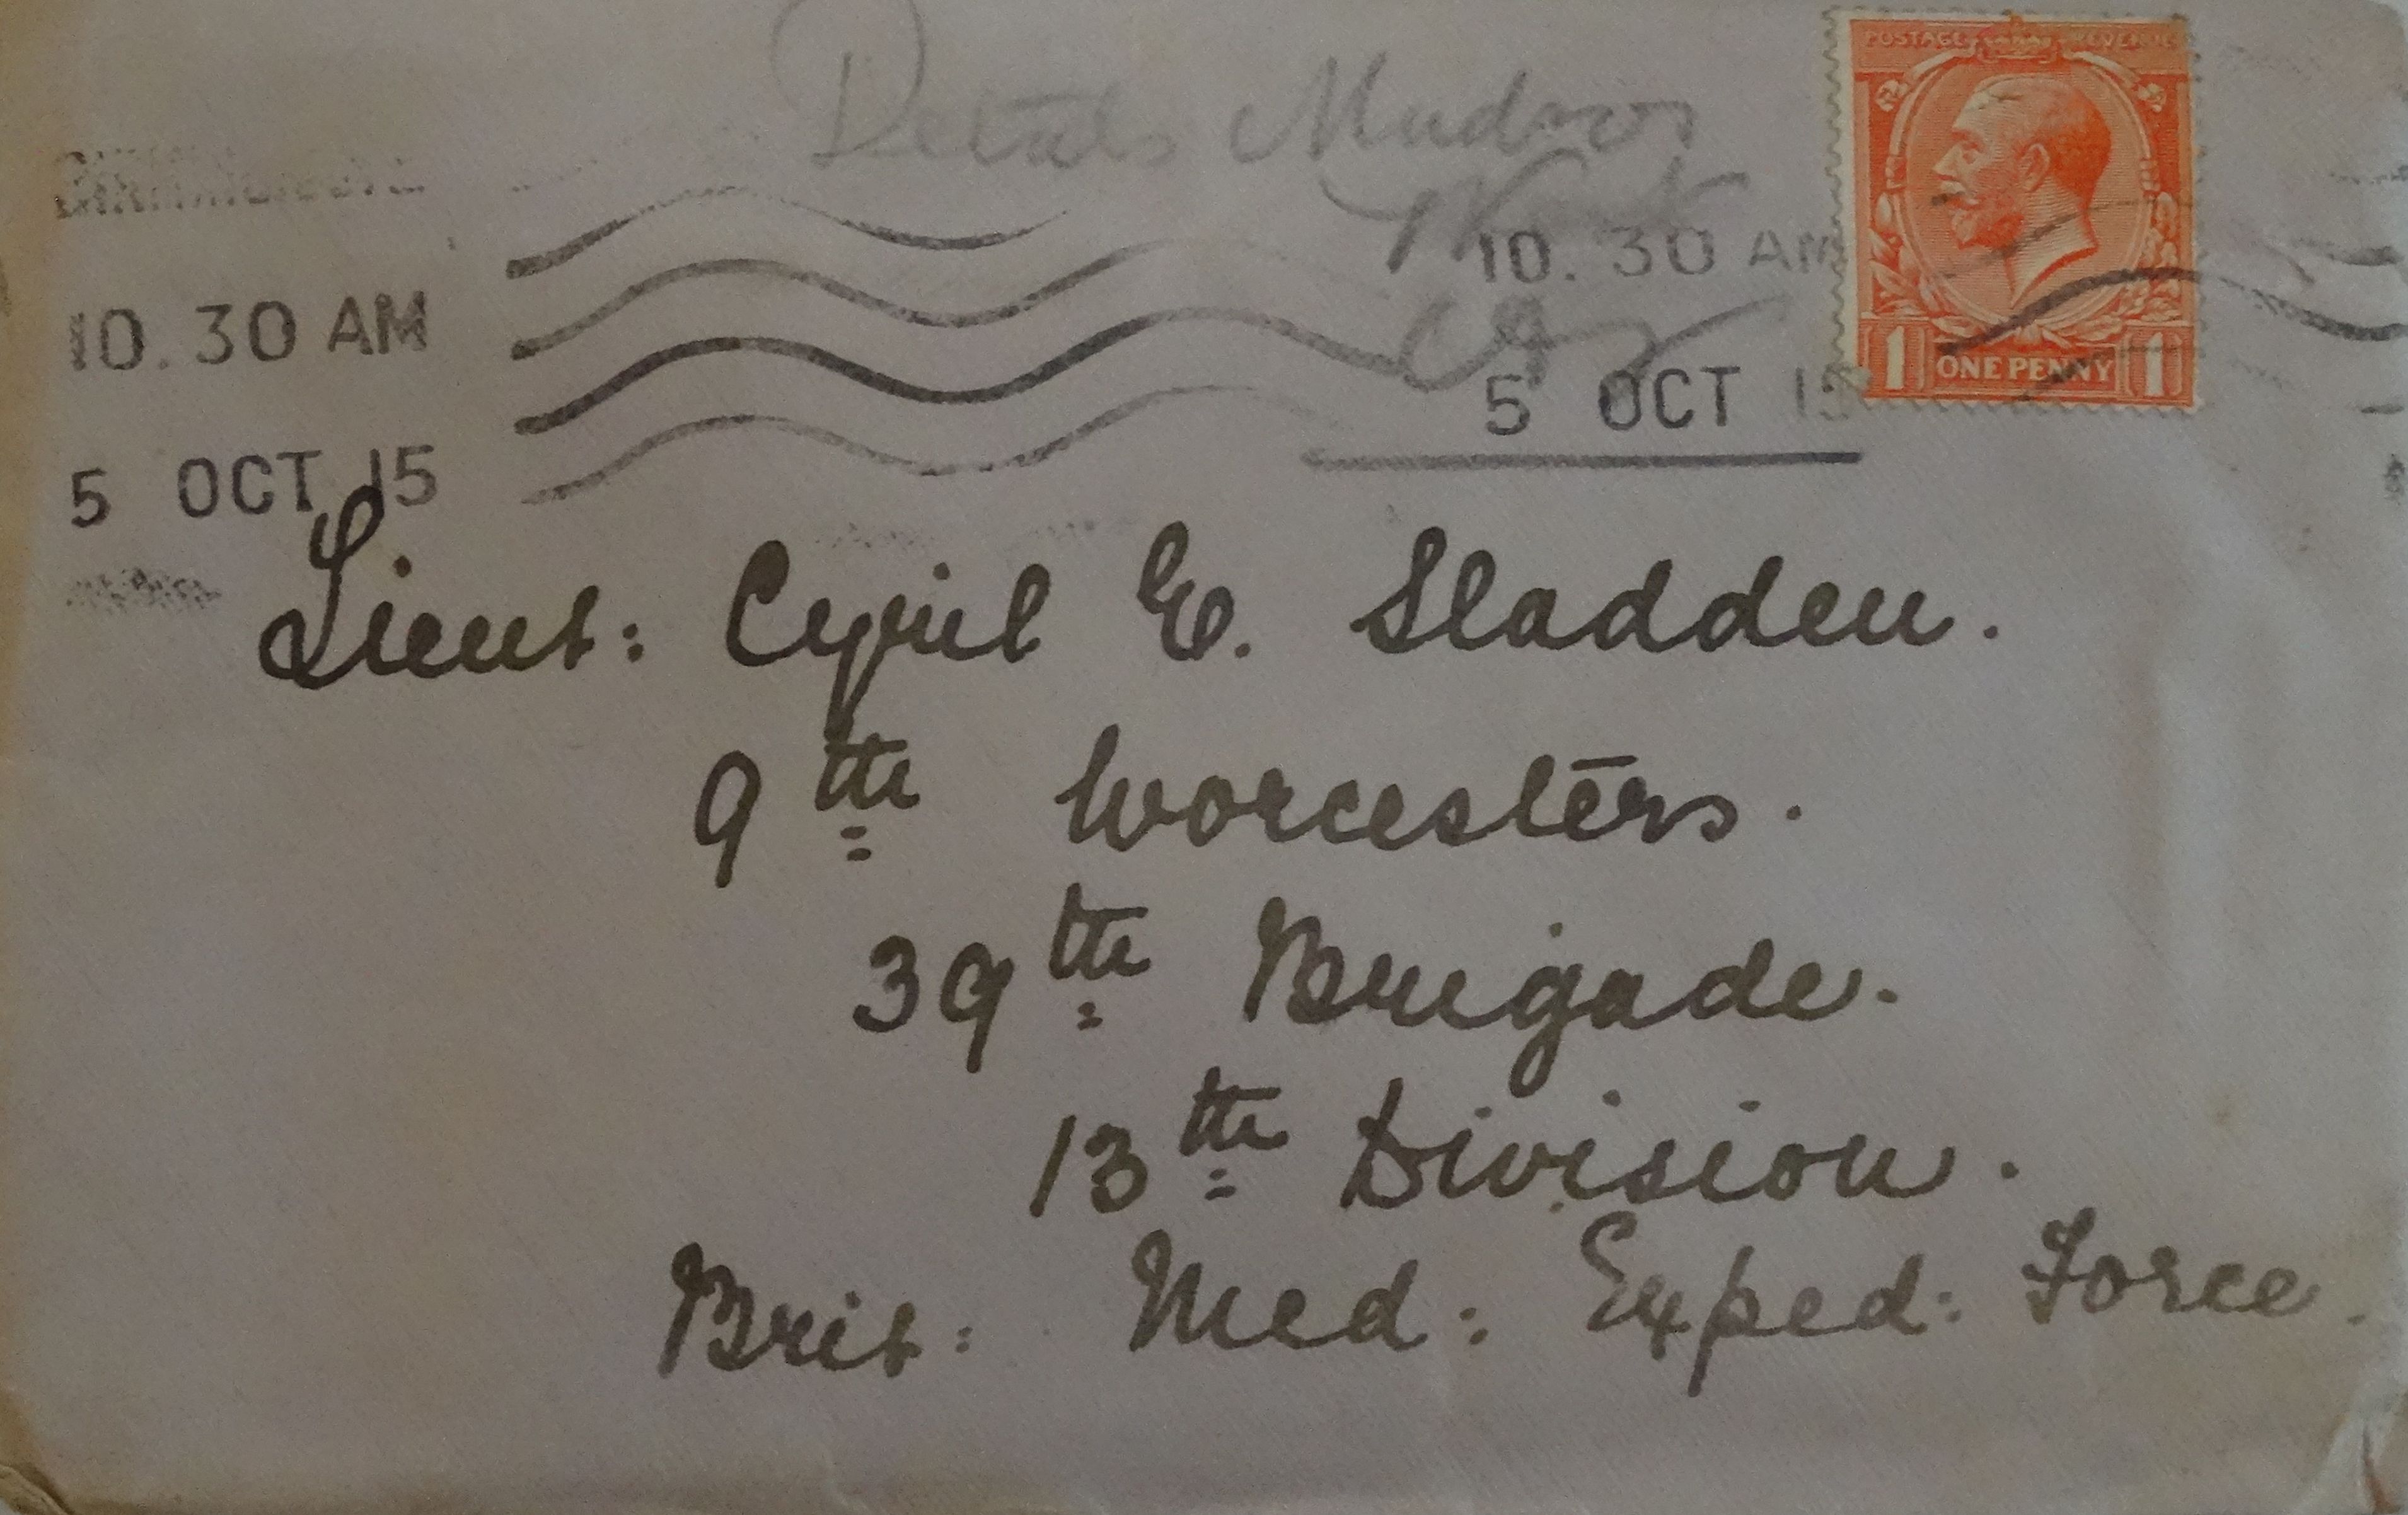 Details Mudros
POSTAGE REVENUE
10. 30 AM
10. 30 AM
5 OCT 15
5 OCT 15
1 ONE PENNY 1
Lieut: Cyril E. Sladden.
9th Worcesters.
39th Brigade.
13th Division.
Brit: Med: Exped: Force.